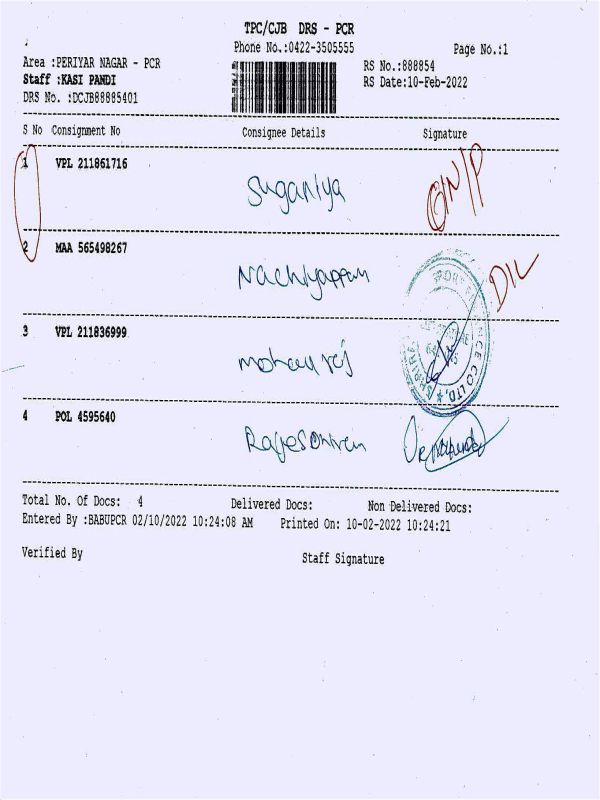 TPC/CJB DRS - PCR
Phone No.:0422-3505555 Page No.:1
Area :PERIYAR NAGAR - PCR RS No.:888854
Staff :KASI PANDI RS Date:10-Feb-2022
DRS No. :DCJB88885401
S No Consignment No Consignee Details Signature
1 VPL 211861716 Suganiya O/N/P
2 MAA 565498267 Nachiyappan D/L
3 VPL 211836999 mohan raj
4 POL 4595640
Total No. Of Docs: 4 Delivered Docs: Non Delivered Docs:
Entered By :BABUPCR 02/10/2022 10:24:08 AM Printed On: 10-02-2022 10:24:21
Verified By Staff Signature